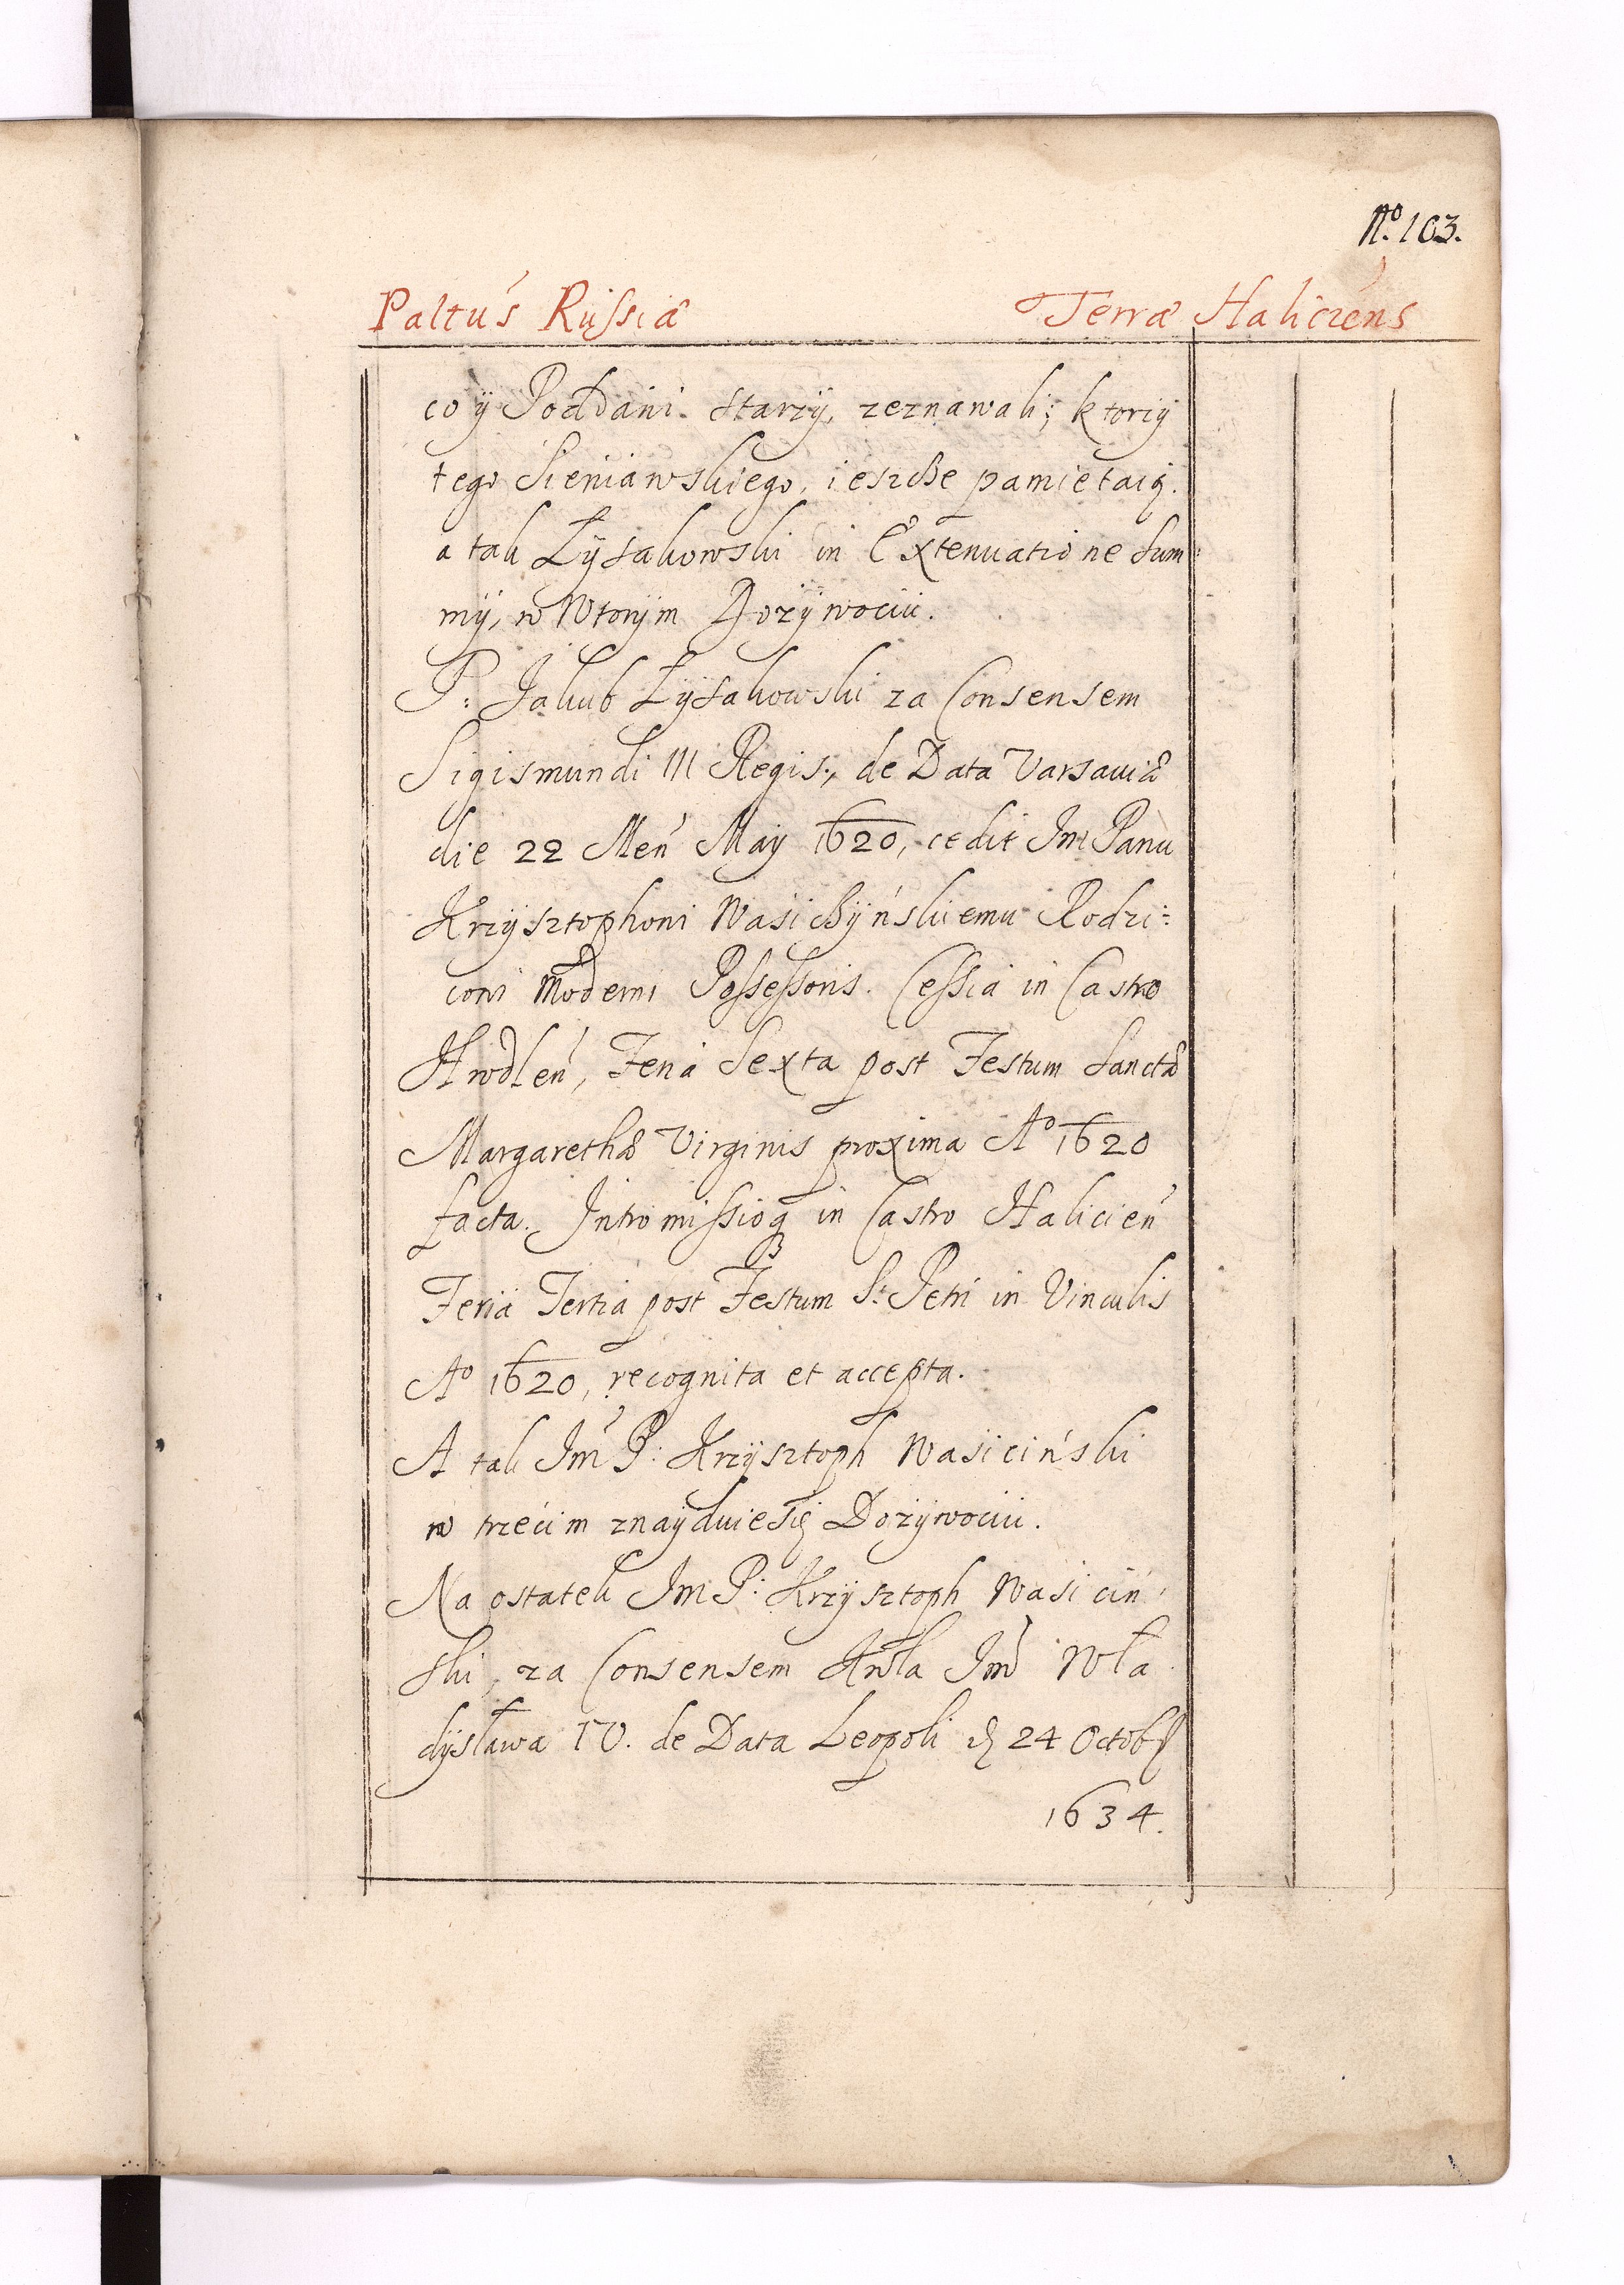 No. 103.
Paltus Russiæ Terræ Haliczens
co ÿ Poddani starzÿ, zeznawali; ktorzÿ
tego Sieniawskiego, ieszcze pamietaią.
a tak Łÿsakowski in Extenuatione Sum=
mÿ, w Wtorÿm Dozÿwociu.
P: Jakub Łÿsakowski za Consensem
Sigismundi III Regis, de Data Varsaviæ
die 22 Men̄ Maÿ 1620, cedit Im Panu
Krzÿsztophoni Wasiczÿńskiemu Rodzi=
coni Moderni Possessoris. Cessia in Castro
Feria Sexta post Festum Sanctæ
Margarethæ Virginis proxima Ao 1620
facta. Intromissioq in Castro Halicień
Feria Tertia post Festum St: Petri in Vinculis
Ao 1620, recognita et accepta.
A tak Im P: Krzÿsztoph Wasiciński
w trzecim znayduiesię Dozÿwociu.
Na ostatek Im P: Krzÿsztoph Wasiciń
ski, za Consensem Krola Im Wła
dÿsława IV. de Data Leopoli d 24 Octobr
1634.